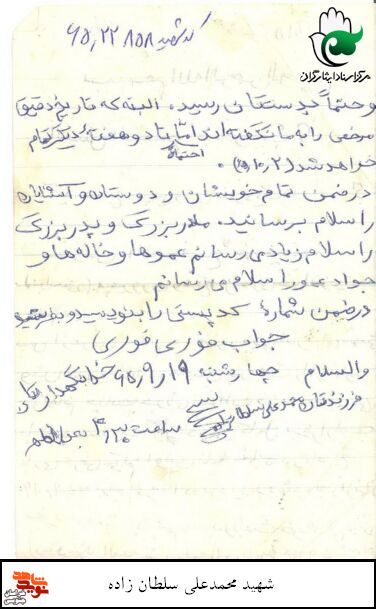 کد شهید 6522858
مرکز اسناد ایثارگران
و حتماً بدستتان رسیده. البته که تاریخ دقیق
مرخصی را به ما نگفته‌اند امّا تا دو هفته دیگر تمام
خواهد شد (
احتمالاً
در ضمن تمام خویشان و دوستان و آشنایان
را سلام برسانید. مادربزرگ و پدربزرگ
را سلام زیادی میرسانم عموها و خاله‌ها و
جواد عمو را سلام می‌رسانم
در ضمن شمارهٔ کد پستی را بنویسید و بفرستید
جواب فوری فوری
والسلام چهارشنبه 65/9/19 خدانگهدار
فرزندتان محمدعلی سلطان‌زاده
ساعت 4/30 بعدازظهر
شهید محمدعلی سلطان زاده
نوید شاهد